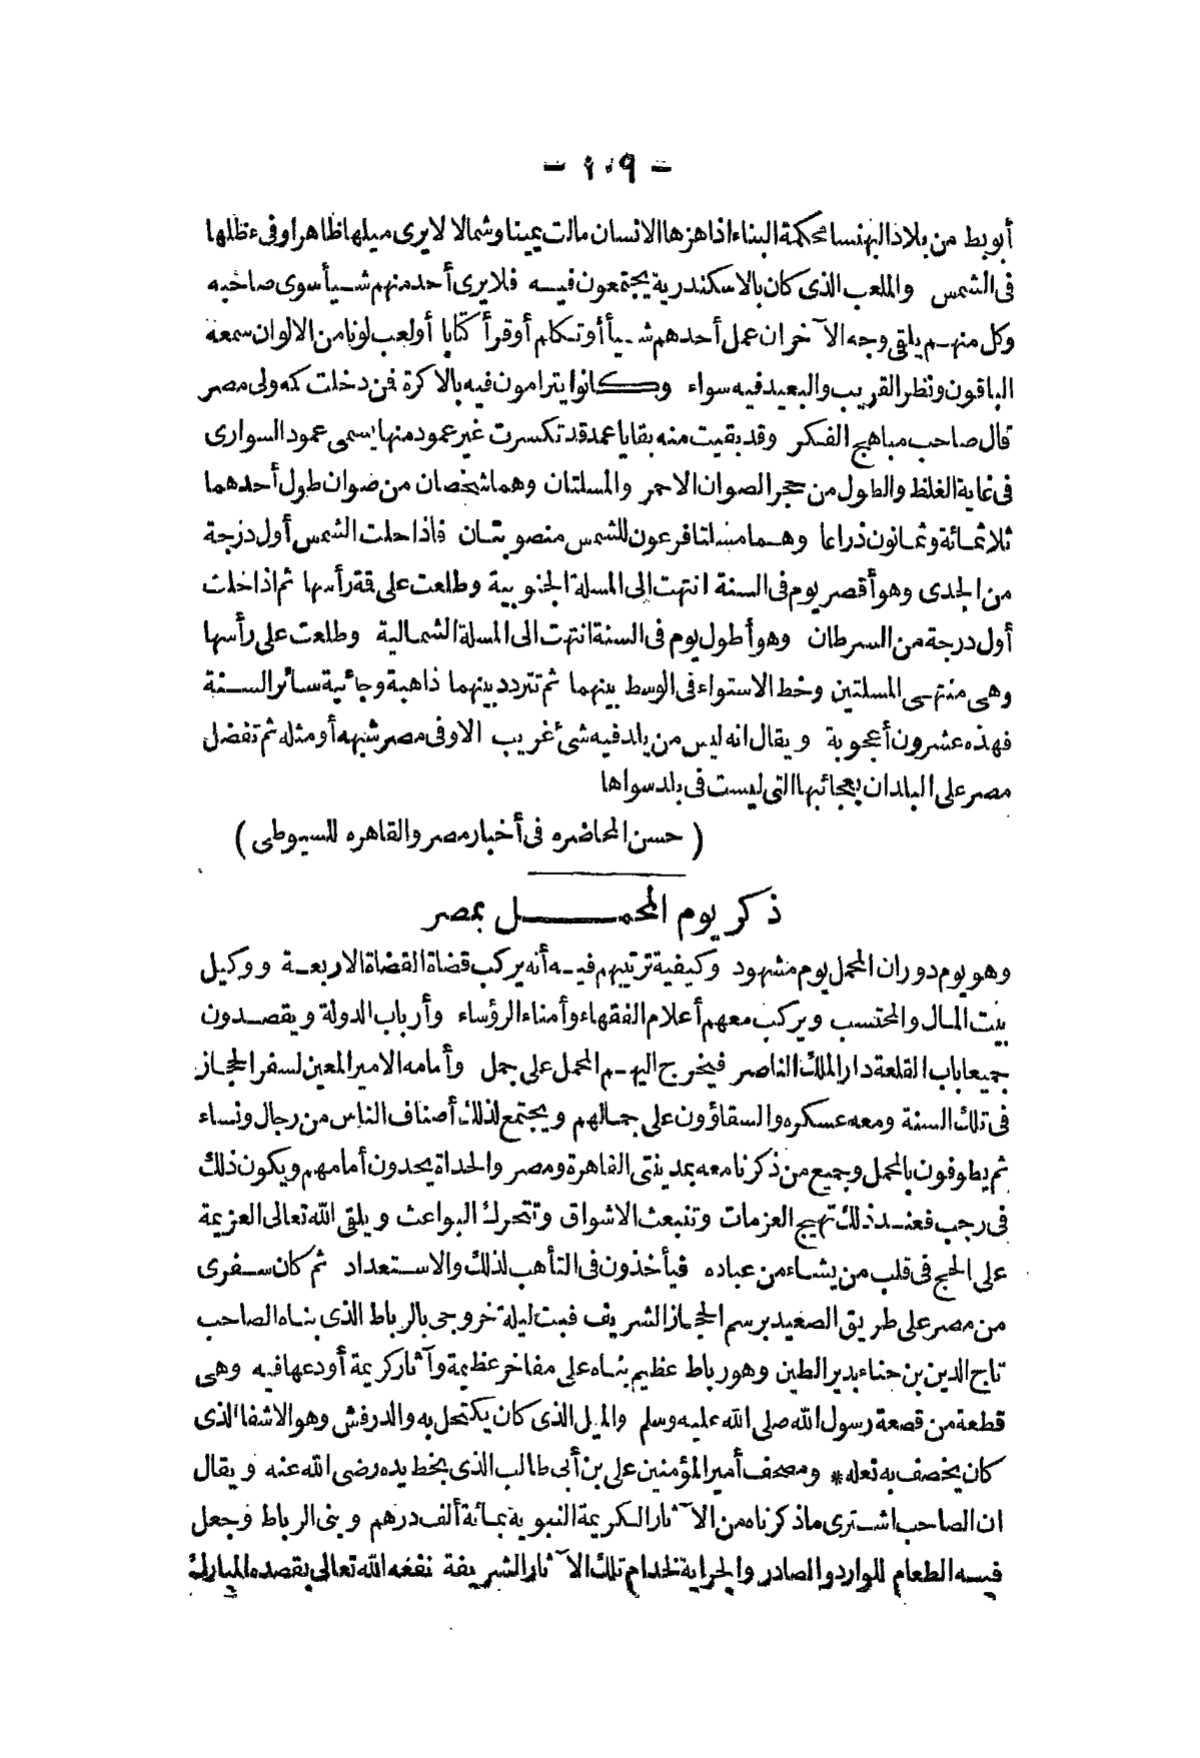 - ١٠٩ -
أبويط من بلاد البهنسا محكمة البناء اذا هزها الانسان مالت يمينا وشمالا لا يرى ميلها ظاهرا وفىء ظلها
فى الشمس والملعب الذى كان بالاسكندرية يجتمعون فيه فلا يرى أحد منهم شيأ سوى صاحبه
وكل منهم يلقى وجه الآخر ان عمل أحدهم شيأ أو تكلم أو قرأ كتابا أو لعب لونا من الالوان سمعه
الباقون ونظر القريب والبعيد فيه سواء وكانوا يترامون فيه بالاكرة فمن دخلت كمه ولى مصر
قال صاحب مباهج الفكر وقد بقيت منه بقايا عمد قد تكسرت غير عمود منها يسمى عمود السوارى
فى غاية الغلظ والطول من حجر الصوان الاحمر والمسلتان وهما شخصان من صوان طول أحدهما
ثلاثمائة وثمانون ذراعا وهما مسلتا فرعون للشمس منصوبتان فاذا حلت الشمس أول درجة
من الجدى وهو أقصر يوم فى السنة انتهت الى المسلة الجنوبية وطلعت على قة رأسها ثم اذا حلت
أول درجة من السرطان وهو أطول يوم فى السنة انتهت الى المسلة الشمالية وطلعت على رأسها
وهى منتهى المسلتين وخط الاستواء فى الوسط بينهما ثم تتردد بينهما ذاهبة وجائية سائر السنة
فهذه عشرون أعجوبة ويقال انه ليس من بلد فيه شئ غريب الا وفى مصر شبهه أو مثله ثم تفضل
مصر على البلدان بعجائبها التى ليست فى بلد سواها
( حسن المحاضره فى أخبار مصر والقاهره للسيوطى )
ذكر يوم المحمل بمصر
وهو يوم دوران المحمل يوم مشهود وكيفية ترتيبهم فيه أنه يركب قضاة القضاة الاربعة ووكيل
بيت المال والمحتسب ويركب معهم أعلام الفقهاء وأمناء الرؤساء وأرباب الدولة ويقصدون
جميعا باب القلعة دار الملك الناصر فيخرج اليهم المحمل على جمل وأمامه الامير المعين لسفر الحجاز
فى تلك السنة ومعه عسكره والسقاؤون على جمالهم ويجتمع لذلك أصناف الناس من رجال ونساء
ثم يطوفون بالمحمل وجميع من ذكرنا معه بمدينتى القاهرة ومصر والحداة يحدون أمامهم ويكون ذلك
فى رجب فعند ذلك تهيج العزمات وتنبعث الاشواق وتتحرك البواعث ويلقى الله تعالى العزيمة
على الحج فى قلب من يشاء من عباده فيأخذون فى التأهب لذلك والاستعداد ثم كان سفرى
من مصر على طريق الصعيد برسم الحجاز الشريف فبت ليلة خروجى بالرباط الذى بناه الصاحب
تاج الدين بن حناء بدير الطين وهو رباط عظيم بناه على مفاخر عظيمة وآثار كريمة أودعها فيه وهى
قطعة من قصعة رسول الله صلى الله عليه وسلم والميل الذى كان يكتحل به والدرفش وهو الاشفا الذى
كان يخصف به نعله * ومصحف أمير المؤمنين على بن أبى طالب الذى بخط يده رضى الله عنه ويقال
ان الصاحب اشترى ماذكرناه من الآثار الكريمة النبوية بمائة ألف درهم وبنى الرباط وجعل
فيه الطعام للوارد والصادر والجراية لخدام تلك الآثار الشريفة نفعه الله تعالى بقصده المبارك